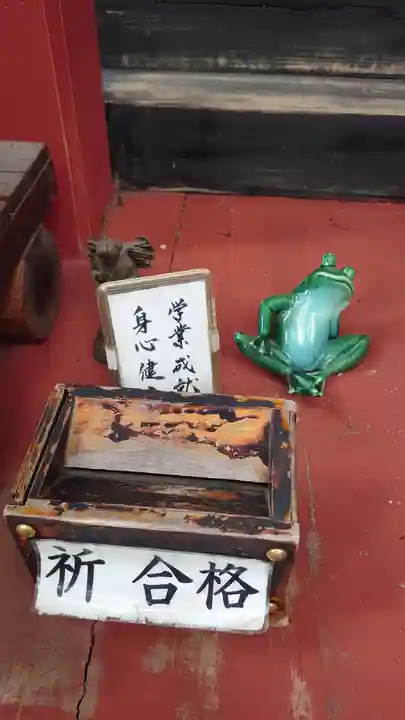 学業成就
身心健
祈合格